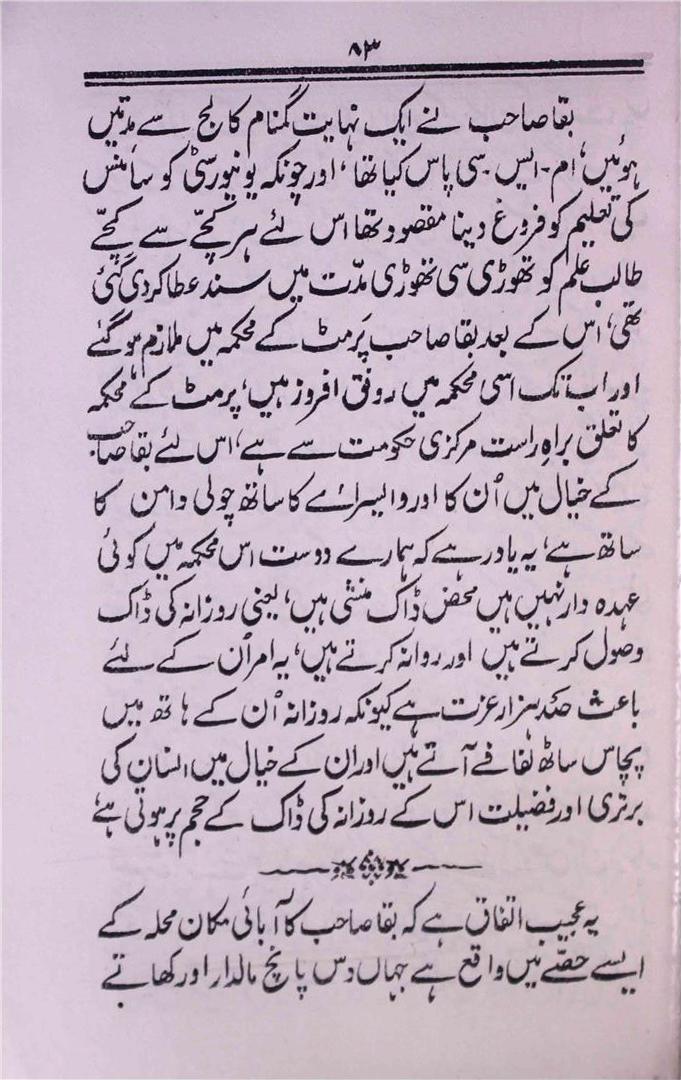 ۸۳
بقا صاحب نے ایک نہایت گمنام کالج سے مدتیں
ہوئیں، ام۔ ایس۔ سی پاس کیا تھا، اور چونکہ یونیورسٹی کو سائنس
کی تعلیم کو فروغ دینا مقصود تھا اس لئے ہر کچّے سے کچّے
طالب علم کو تھوڑی سی تھوڑی مدّت میں سند عطا کر دی گئی
تھی، اس کے بعد بقا صاحب پَرمٹ کے محکمہ میں ملازم ہو گئے
اور اب تک اسی محکمہ میں رونق افروز ہیں، پرمٹ کے محکمہ
کا تعلق براہِ راست مرکزی حکومت سے ہے، اس لئے بقا صاحب
کے خیال میں اُن کا اور وایسراے کا ساتھ چولی دامن کا
ساتھ ہے، یہ یاد رہے کہ ہمارے دوست اس محکمہ میں کوئی
عہدہ دار نہیں ہیں محض ڈاک منشی ہیں، یعنی روزانہ کی ڈاک
وصول کرتے ہیں اور روانہ کرتے ہیں، یہ امر اُن کے لئے
باعث صد ہزار عزت ہے کیونکہ روزانہ اُن کے ہاتھ میں
پچاس ساٹھ لفافے آتے ہیں اور ان کے خیال میں انسان کی
برتری اور فضیلت اس کے روزانہ کی ڈاک کے حجم پر ہوتی ہے
یہ عجیب اتفاق ہے کہ بقا صاحب کا آبائی مکان محلہ کے
ایسے حصّے میں واقع ہے جہاں دس پانچ مالدار اور کھاتے